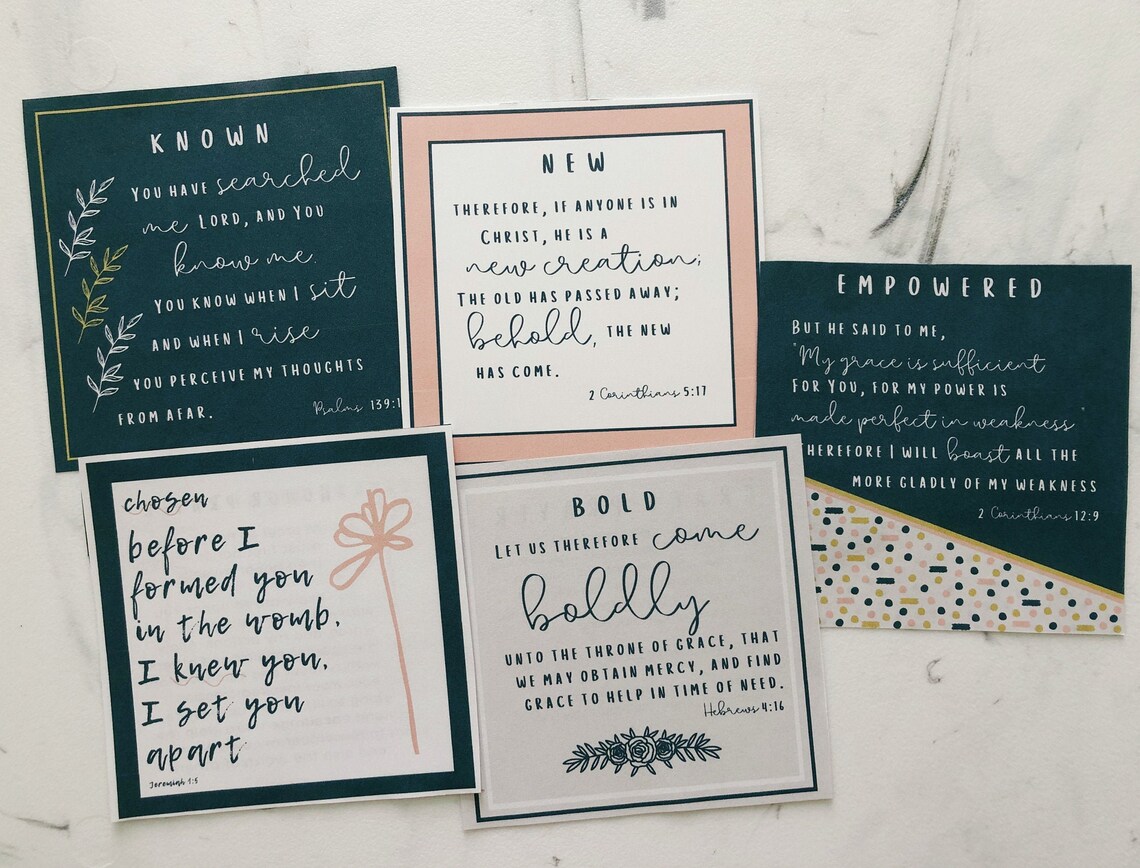 KNOWN
YOU HAVE searched
me LORD, AND YOU
know me.
YOU KNOW WHEN I sit
AND WHEN I rise
YOU PERCEIVE MY THOUGHTS
FROM AFAR.
Psalms 139:1
NEW
THEREFORE, IF ANYONE IS IN
CHRIST, HE IS A
new creation;
THE OLD HAS PASSED AWAY;
behold, THE NEW
HAS COME.
2 Corinthians 5:17
EMPOWERED
BUT HE SAID TO ME,
"My grace is sufficient
FOR YOU, FOR MY POWER IS
made perfect in weakness"
THEREFORE I WILL boast ALL THE
MORE GLADLY OF MY WEAKNESS
2 Corinthians 12:9
chosen
before I
formed you
in the womb,
I knew you,
I set you
apart
Jeremiah 1:5
BOLD
LET US THEREFORE come
boldly
UNTO THE THRONE OF GRACE, THAT
WE MAY OBTAIN MERCY, AND FIND
GRACE TO HELP IN TIME OF NEED.
Hebrews 4:16